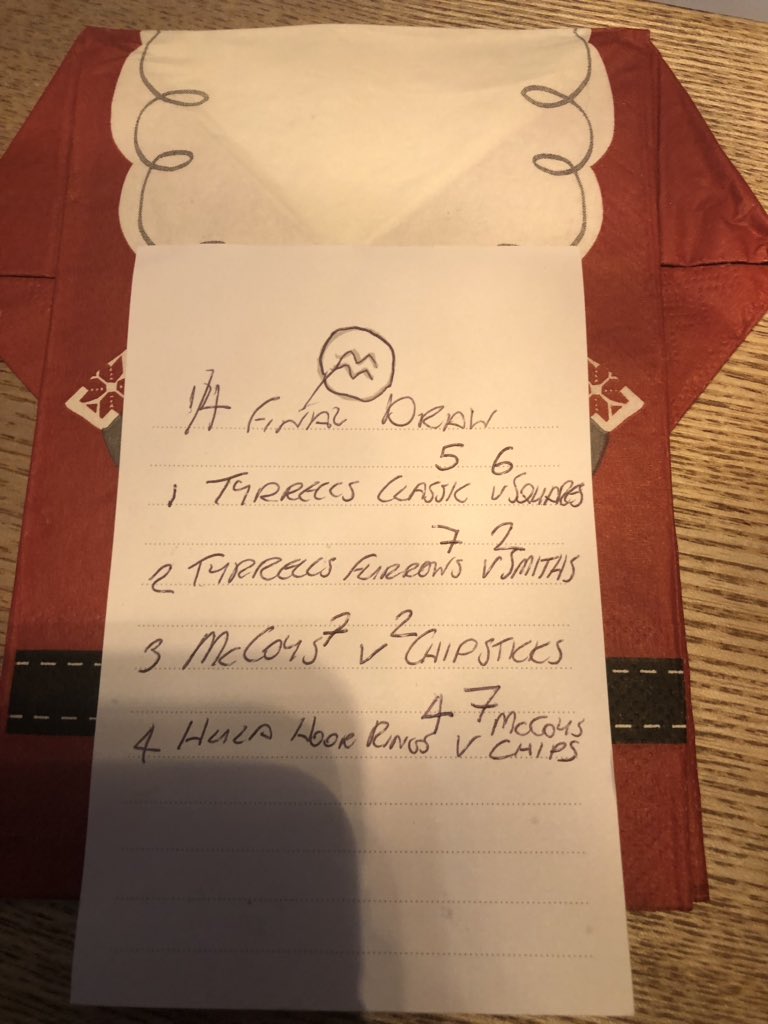 1/4 FINAL DRAW
5 6
1 TYRRELLS CLASSIC V SQUARES
7 2
2 TYRRELLS FURROWS V SMITHS
3 McCOYS 7 V 2 CHIPSTICKS
4 7
4 HULA HOOP RINGS V McCOYS CHIPS